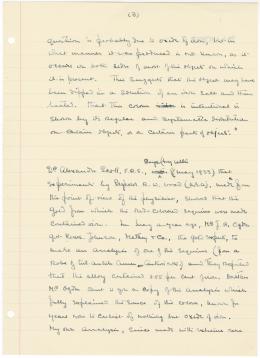 (3)
question is probably due to oxide of iron, but in
what manner it was produced is not known, as it
occurs on both sides of most of the objects on which
it is present. This suggests that the object may have
been dipped in a solution of an iron salt and then
heated. That this colour is intentional is
shown by its regular and systematic distribution
on certain objects, or on certain parts of objects."
Dr Alexander Scott, F.R.S., (May 1933) that
experiments by Professor R. W. Wood (U.S.A.), made from
the point of view of the physicist, showed that the
gold from which the red-coloured sequins was made
contained iron. In many years ago, Mr J. H. Ogden
got Messrs Johnson, Matthey & Co., the gold experts, to
make an analysis of one of the sequins (from a
Robe of Tut-ankh-Amun) and they reported
that the alloy contained per cent of iron.
Mr Ogden sent to you a copy of the analysis which
fully explained the cause of the colour, known for
years now to consist of nothing but oxide of iron.
My own analysis, since made with